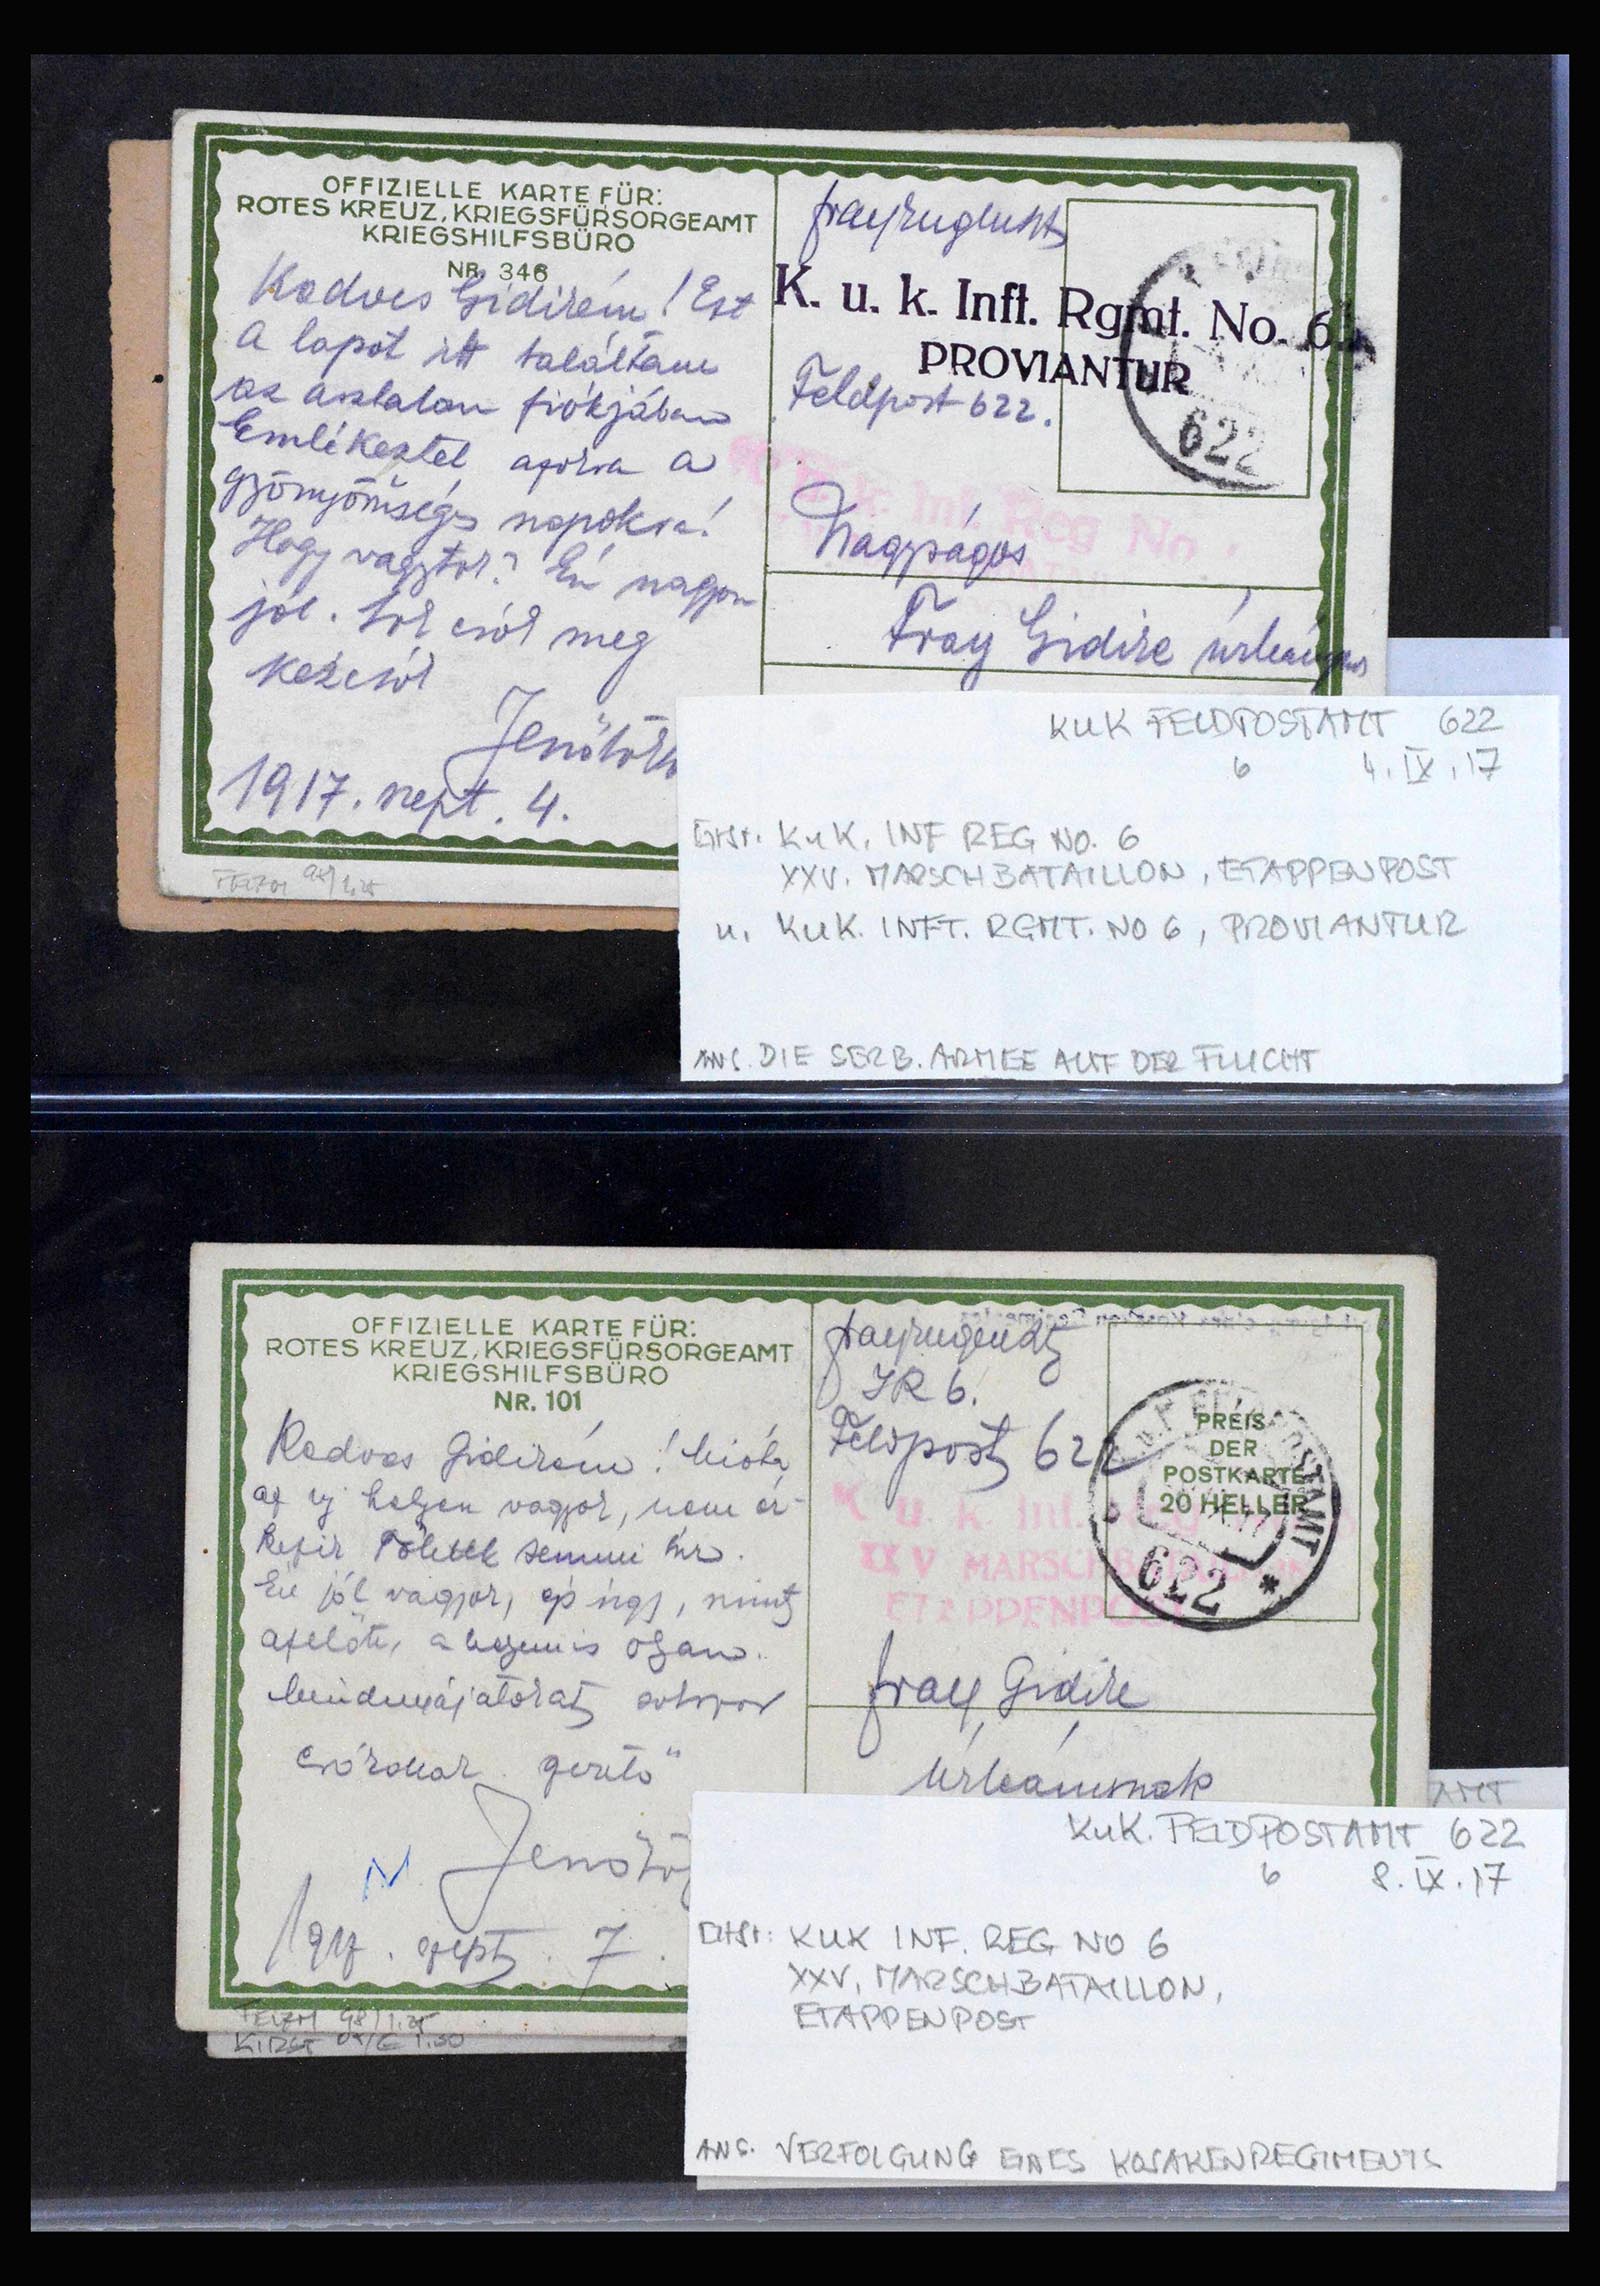 OFFIZIELLE KARTE FÜR:
ROTES KREUZ, KRIEGSFÜRSORGEAMT
KRIEGSHILFSBÜRO
NR. 346
Kedves Gidikém! Ezt
a lapot itt találtam
az asztalom fiókjában
Emlékeztet azokra a
gyönyörűséges napokra!
Hogy vagytok? Én nagyon
jól. Sok csók meg
kézcsók
1917. szept. 4.
K. u. k. Inft. Rgmt. No. 6
PROVIANTUR
Feldpost 622.
622
k. Inf. Reg No
Fray Gidike
KUK FELDPOSTAMT 622
6 4.IX.17
KuK. INF REG NO. 6
XXV. MARSCHBATAILLON, ETAPPENPOST
u. KUK. INFT. RGMT. NO 6, PROVIANTUR
ANS. DIE SERB. ARMEE AUF DER FLUCHT
OFFIZIELLE KARTE FÜR:
ROTES KREUZ, KRIEGSFÜRSORGEAMT
KRIEGSHILFSBÜRO
NR. 101
Kedves Gidikém! Mióta
az uj helyen vagyok, nem ér-
kezik Tőletek semmi hír.
Én jól vagyok, ép úgy, mint
azelőtt,
Mindnyájatokat sokszor
csókol
1917. szept. 7.
IR 6.
Feldpost 622
PREIS
DER
POSTKARTE
20 HELLER
FELDPOSTAMT
622 *
K. u. k. Inf. Reg
XXV MARSCHBATAILLON
ETAPPENPOST
Fray Gidike
Úrleánynak
AMT
KuK. FELDPOSTAMT 622
6 8.IX.17
KUK INF. REG NO 6
XXV. MARSCHBATAILLON,
ETAPPENPOST
ANS. VERFOLGUNG EINES KOSAKENREGIMENTS